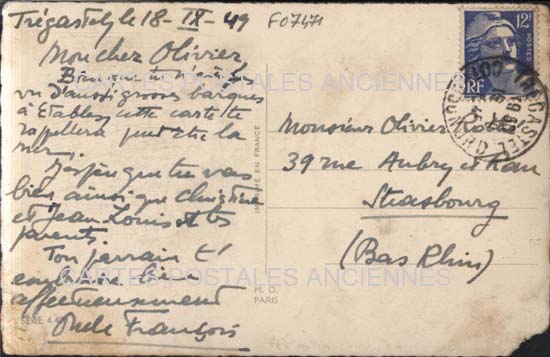 Trégastel le 18-IX-49
F07471
Mon cher Olivier
Bien que tu n'aies pas
vu d'aussi grosses barques
à Etables, cette carte te
rappellera peut être la
mer.
J'espère que tu vas
bien ainsi que Christine
et Jean-Louis et tes
parents.
Ton parrain t'
embrasse bien
affectueusement
Oncle François
SÉRIE
IMPRIMÉ EN FRANCE
M. D.
PARIS
12F
POSTES
RF
TREGASTEL
COTES
Monsieur Olivier
39 rue Aubry et Rau
Strasbourg
(Bas Rhin)
CARTES POSTALES ANCIENNES
CARTES POSTALES ANCIENNES